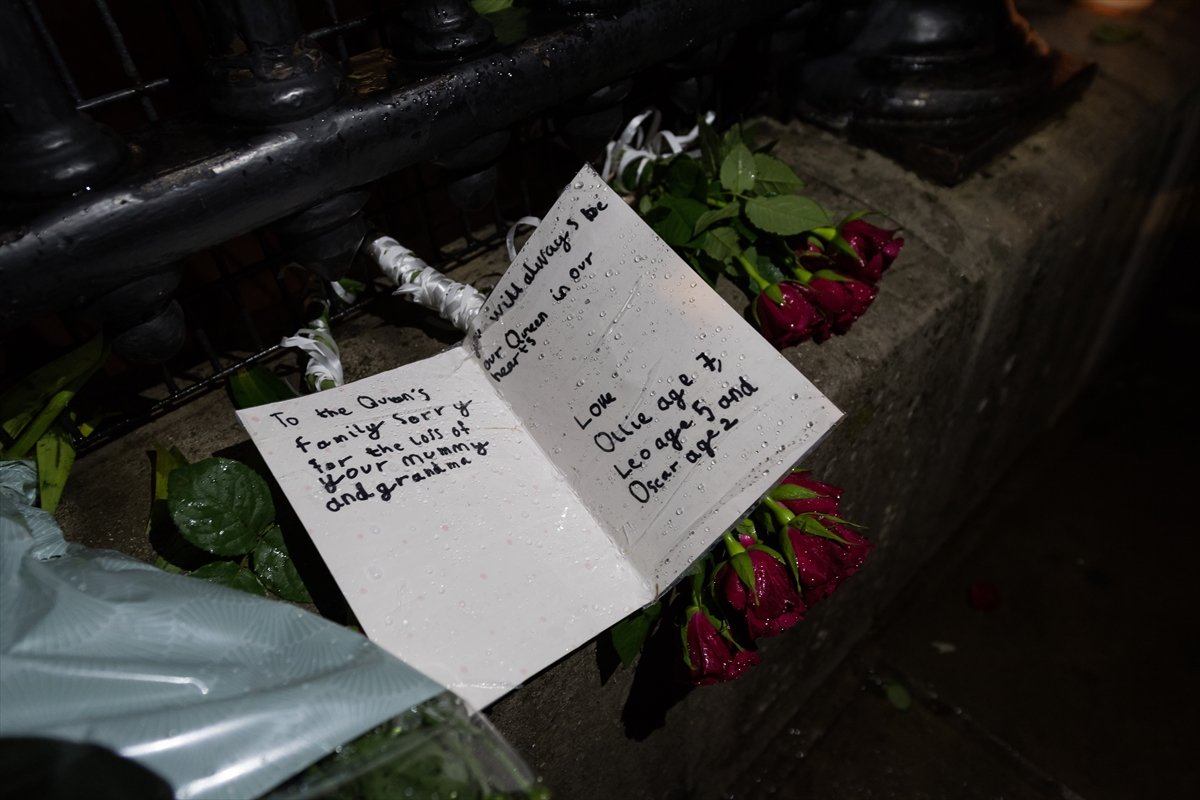 To the Queen's
family sorry
for the loss of
your mummy
and grandma
will always be
our Queen in our
hearts
Love
Ollie age 7,
Leo age 5 and
Oscar age 2